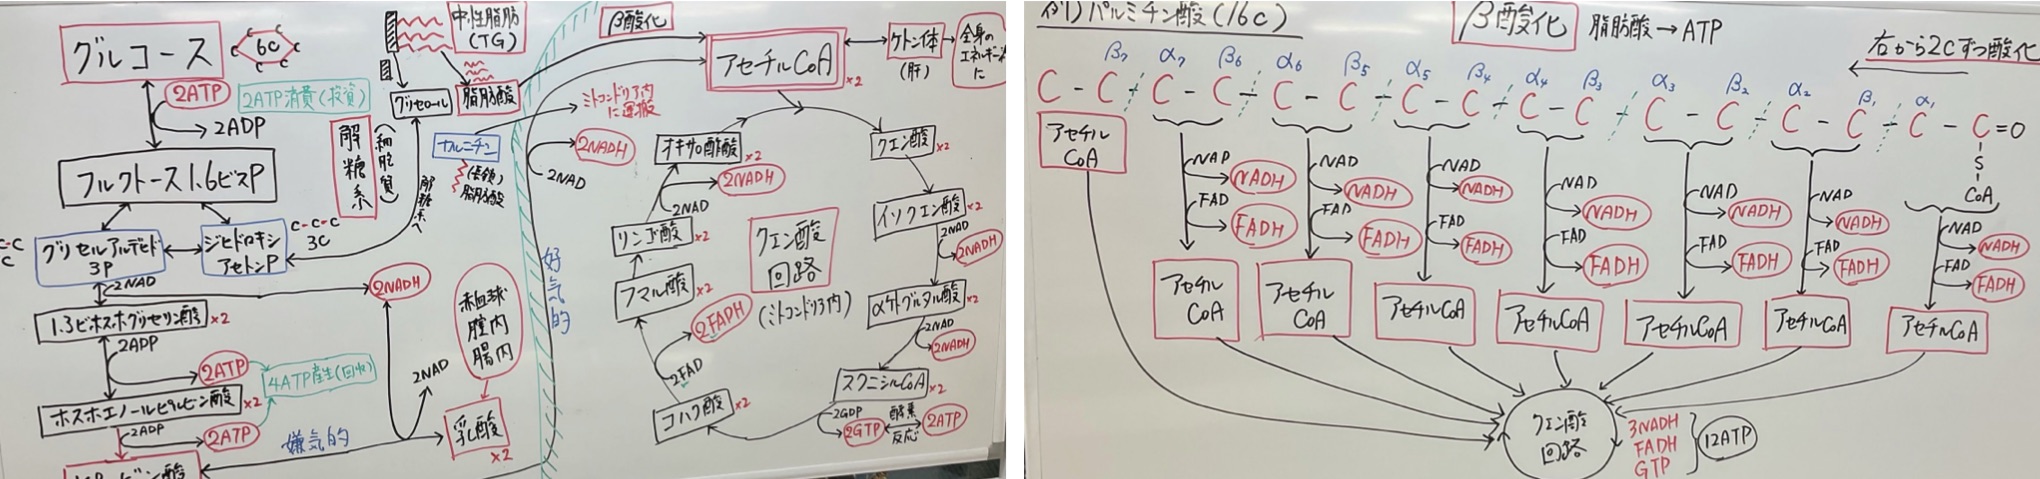 グルコース
C
C
C
6C
C
C
C
2ATP
2ATP消費(投資)
2ADP
フルクトース1.6ビスP
解糖系
(細胞質)
グリセルアルデヒド
3P
ジヒドロキシ
アセトンP
C-C-C
3C
C-C
C
2NAD
2NADH
1.3ビホスホグリセリン酸
×2
2ADP
2ATP
4ATP産生(回収)
ホスホエノールピルビン酸
×2
2ADP
2ATP
嫌気的
2NAD
赤血球
腟内
腸内
乳酸
×2
中性脂肪
(TG)
グリセロール
脂肪酸
カルニチン
脂肪酸
ミトコンドリア内
に運搬
2NADH
2NAD
好気的
β酸化
アセチルCoA
×2
ケトン体
(肝)
全身の
に
オキサロ酢酸
×2
2NADH
2NAD
リンゴ酸
×2
フマル酸
×2
2FADH
2FAD
コハク酸
×2
クエン酸
回路
(ミトコンドリア内)
クエン酸
×2
イソクエン酸
×2
2NAD
2NADH
αケトグルタル酸
×2
2NAD
2NADH
スクニシルCoA
×2
2GDP
2GTP
酵素
反応
2ATP
例)パルミチン酸(16C)
β酸化
脂肪酸→ATP
右から2Cずつ酸化
β7 α7 β6 α6 β5 α5 β4 α4 β3 α3 β2 α2 β1 α1
C - C - C - C - C - C - C - C - C - C - C - C - C - C - C - C=O
S
CoA
アセチル
CoA
NAD
NADH
FAD
FADH
アセチル
CoA
NAD
NADH
FAD
FADH
アセチル
CoA
NAD
NADH
FAD
FADH
アセチルCoA
NAD
NADH
FAD
FADH
アセチルCoA
NAD
NADH
FAD
FADH
アセチルCoA
NAD
NADH
FAD
FADH
アセチルCoA
NAD
NADH
FAD
FADH
アセチルCoA
クエン酸
回路
3NADH
FADH
GTP
12ATP